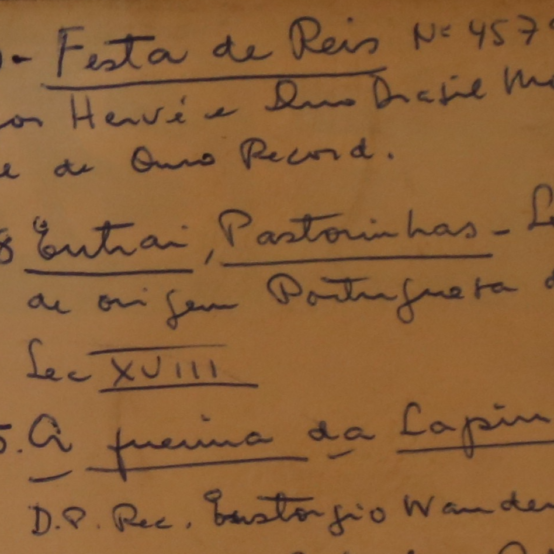 - Festa de Reis Nº 457
por Hervé e Duo Brasil Mo
e de Ouro Record.
Entrai, Pastorinhas - L
de origem Portuguesa d
Sec XVIII
5. A queima da Lapin
D.P. Rec. Eustorgio Wander